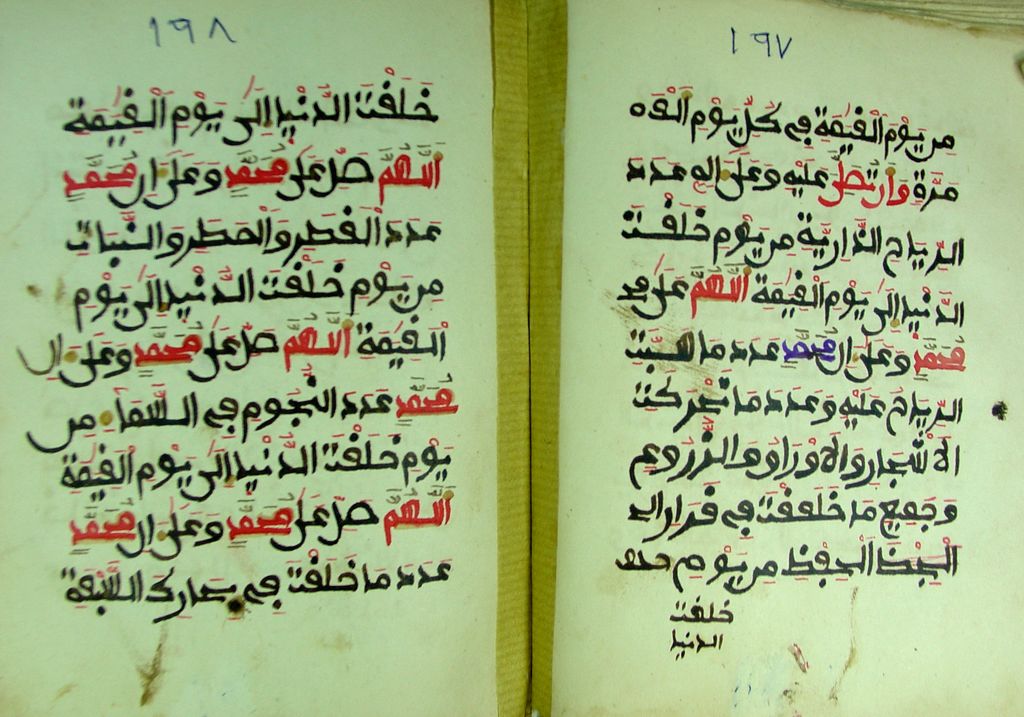 ١٩٧
من يوم القيمة في كل يوم الف
مرة وان تصل عليه وعلى اله عدد
الرياح الذارية من يوم خلقت
الدنيا الى يوم القيمة اللهم على
محمد وعلى ال محمد عدد ما هبت
الرياح عليه وعدد ما تحركت
الاشجار والاوراق والزروع
وجميع ما خلقت في قرار
الحفظ من يوم
خلقت
الدنيا
١٩٨
خلقت الدنيا الى يوم القيمة
اللهم صل على محمد وعلى ال محمد
عدد القطر والمطر والنبات
من يوم خلقت الدنيا الى يوم
القيمة اللهم صل على محمد وعلى ال
محمد عدد النجوم في السماء من
يوم خلقت الدنيا الى يوم القيمة
اللهم صل على محمد وعلى ال محمد
عدد ما خلقت في بحارك السبعة